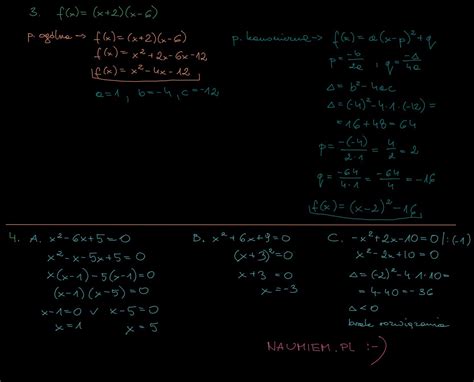 3. f(x)=(x+2)(x-6)
p. ogólna ⇝ f(x)=(x+2)(x-6)
f(x)=x²+2x-6x-12
f(x)=x²-4x-12
a=1, b=-4, c=-12
p. kanoniczna ⇝ f(x)=a(x-p)²+q
p=-b/2a, q=-Δ/4a
Δ=b²-4ac
Δ=(-4)²-4·1·(-12)=
=16+48=64
p=-(-4)/2·1=4/2=2
q=-64/4·1=-64/4=-16
f(x)=(x-2)²-16
4. A. x²-6x+5=0
x²-x-5x+5=0
x(x-1)-5(x-1)=0
(x-1)(x-5)=0
x-1=0 ∨ x-5=0
x=1 x=5
B. x²+6x+9=0
(x+3)²=0
x+3=0
x=-3
C. -x²+2x-10=0 /:(-1)
x²-2x+10=0
Δ=(-2)²-4·1·10=
=4-40=-36
Δ<0
brak rozwiązania
NAUMIEM.PL :-)